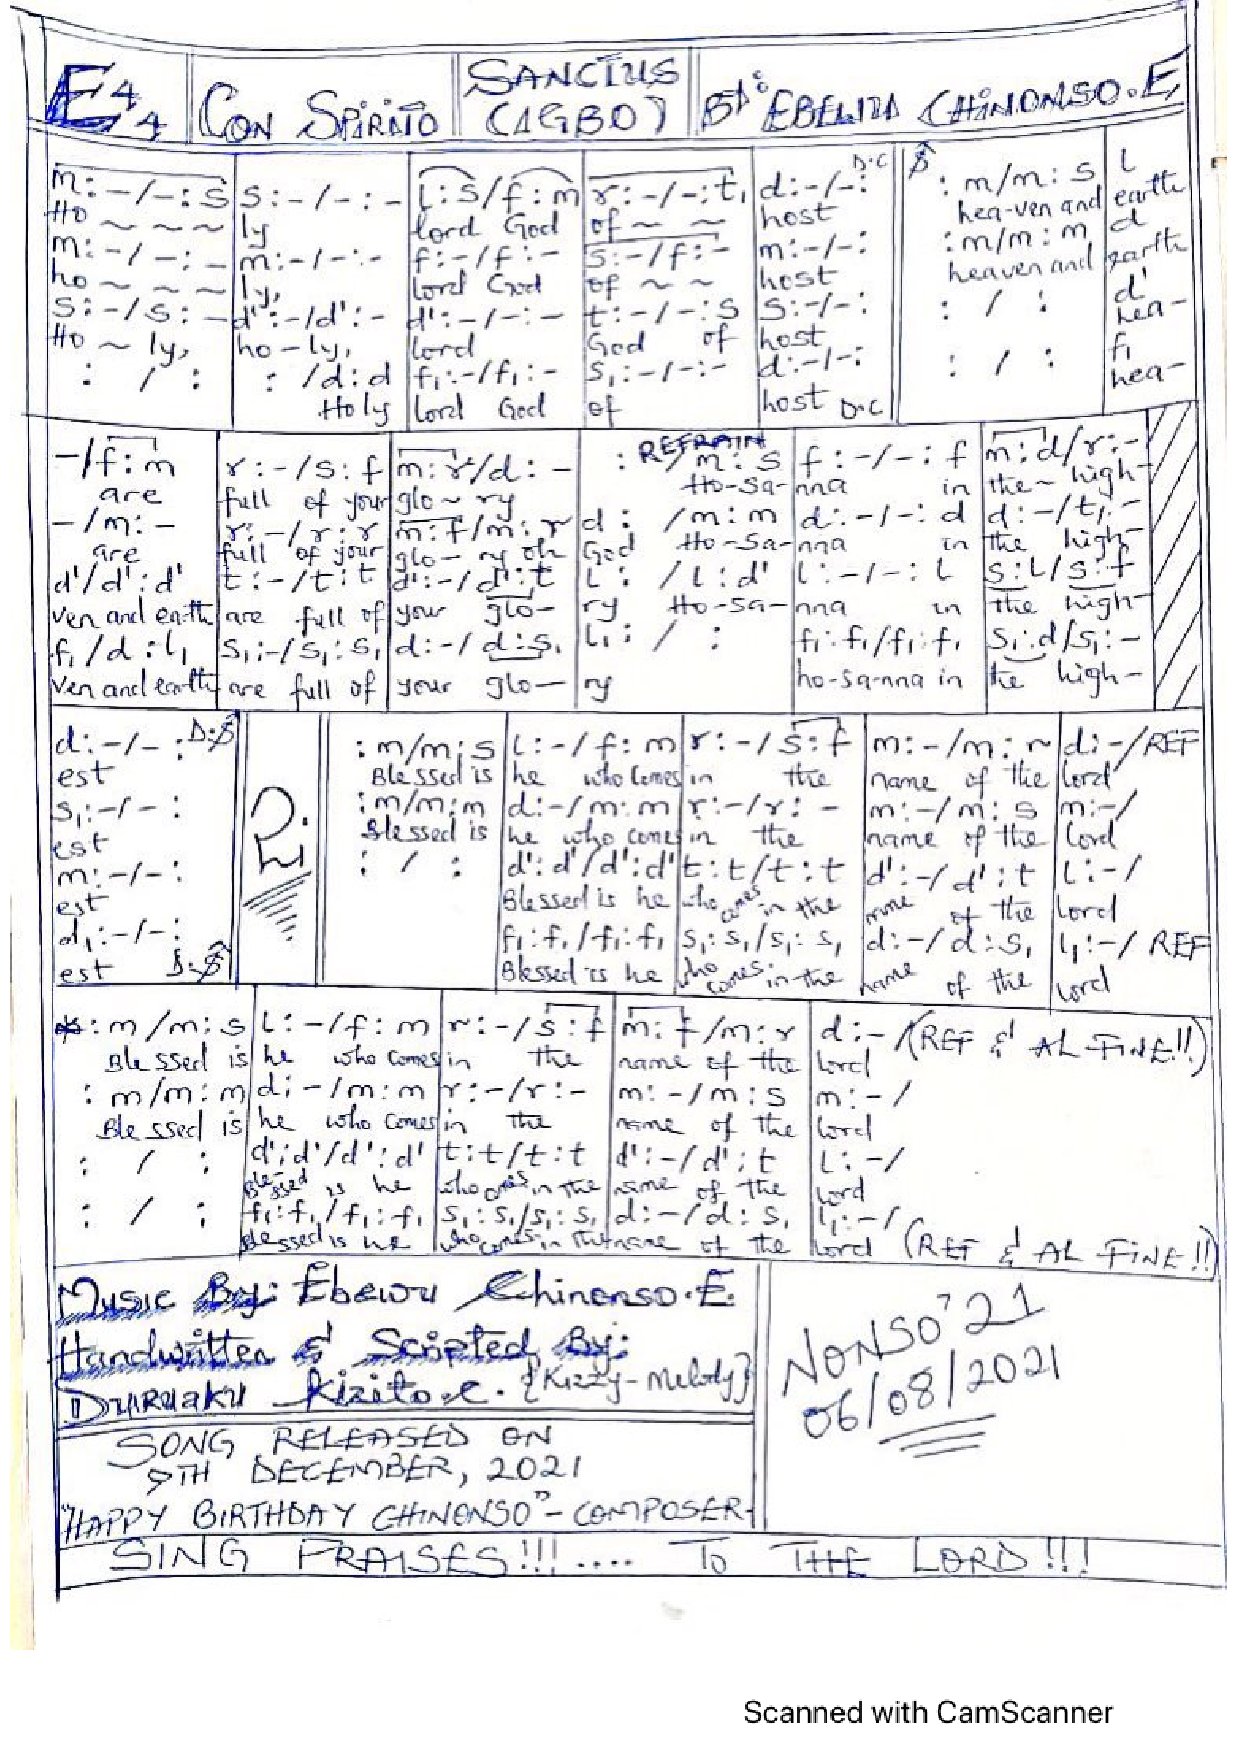 E 4/4 CON SPIRITO SANCTUS (AGBO) BY: EBEWU CHINONSO.E
m:-/-:s s:-/-:- l:s/f:m r:-/-:t₁ d:-/-: D.C $ :m/m:s l
Ho ~ ~ ~ ly lord God of ~ ~ host hea-ven and earth
m:-/-:- m:-/-:- f:-/f:- s:-/f:- m:-/-: :m/m:m d
ho ~ ~ ~ ly, lord God of ~ ~ host heaven and earth
s:-/s:- d':-/d':- d':-/-:- t:-/-:s s:-/-: : / : d'
Ho ~ ly, ho-ly, lord God of host hea-
: / : : /d:d f₁:-/f₁:- s₁:-/-:- d:-/-: : / : f₁
Holy lord God of host D.C hea-
REFRAIN
-/f:m r:-/s:f m:r/d:- : /m:s f:-/-:f m:d/r:-
are full of your glo~ry Ho-Sa-nna in the~high-
-/m:- r:-/r:r m:f/m:r d: /m:m d:-/-:d d:-/t₁:-
are full of your glo-ry oh God Ho-Sa-nna in the high-
d'/d':d' t:-/t:t d':-/d':t l: /l:d' l:-/-:l s:l/s:f
ven and earth are full of your glo-ry Ho-sa-nna in the high-
f₁/d:l₁ s₁:-/s₁:s₁ d:-/d:s₁ l₁: / : f₁:f₁/f₁:f₁ s₁:d/s₁:-
ven and earth are full of your glo-ry ho-sa-nna in the high-
d:-/-: D.$ :m/m:s l:-/f:m r:-/s:f m:-/m:~ d:-/REF
est Blessed is he who comes in the name of the lord
s₁:-/-: :m/m:m d:-/m:m r:-/r:- m:-/m:s m:-/
est Blessed is he who comes in the name of the Lord
m:-/-: : / : d':d'/d':d' t:t/t:t d':-/d':t l:-/
est Blessed is he who comes in the name of the lord
d₁:-/-: f₁:f₁/f₁:f₁ s₁:s₁/s₁:s₁ d:-/d:s₁ l₁:-/ REF
est D.$ Blessed is he who comes in the name of the lord
:m/m:s l:-/f:m r:-/s:f m:f/m:r d:-/(REF & AL-FINE!!)
Blessed is he who comes in the name of the lord
:m/m:m d:-/m:m r:-/r:- m:-/m:s m:-/
Blessed is he who comes in the name of the lord
: / : d':d'/d':d' t:t/t:t d':-/d':t l:-/
Blessed is he who comes in the name of the lord
: / : f₁:f₁/f₁:f₁ s₁:s₁/s₁:s₁ d:-/d:s₁ l₁:-/
Blessed is he who comes in the name of the lord (REF & AL-FINE!!)
Music By: Ebewu Chinonso.E.
Handwritten & Scripted By:
Duruaku Kizito.C. {Kizzy-Melody}
NONSO'21
06/08/2021
SONG RELEASED ON
9TH DECEMBER, 2021
"HAPPY BIRTHDAY CHINONSO"-COMPOSER
SING PRAISES!!!.... TO THE LORD!!!
Scanned with CamScanner